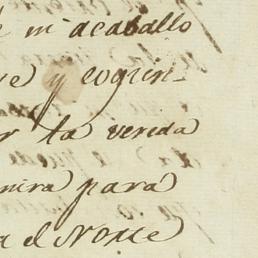 e ni acaballo
ve y cogien-
r la vereda
mira para
a el Norte